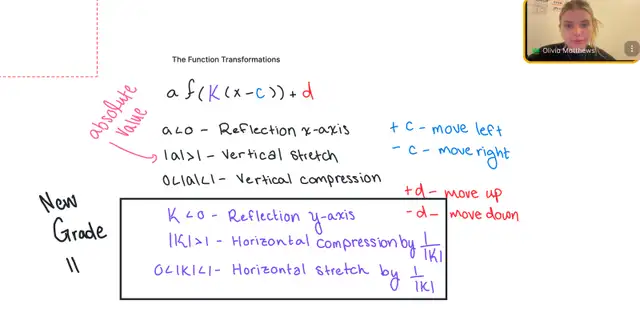 Olivia Matthews
The Function Transformations
a f(K(x-c))+d
absolute value
a<0 - Reflection x-axis
|a|>1 - Vertical stretch
0<|a|<1 - Vertical compression
+c - move left
-c - move right
+d - move up
-d - move down
New Grade 11
K<0 - Reflection y-axis
|K|>1 - Horizontal compression by 1/|K|
0<|K|<1 - Horizontal stretch by 1/|K|